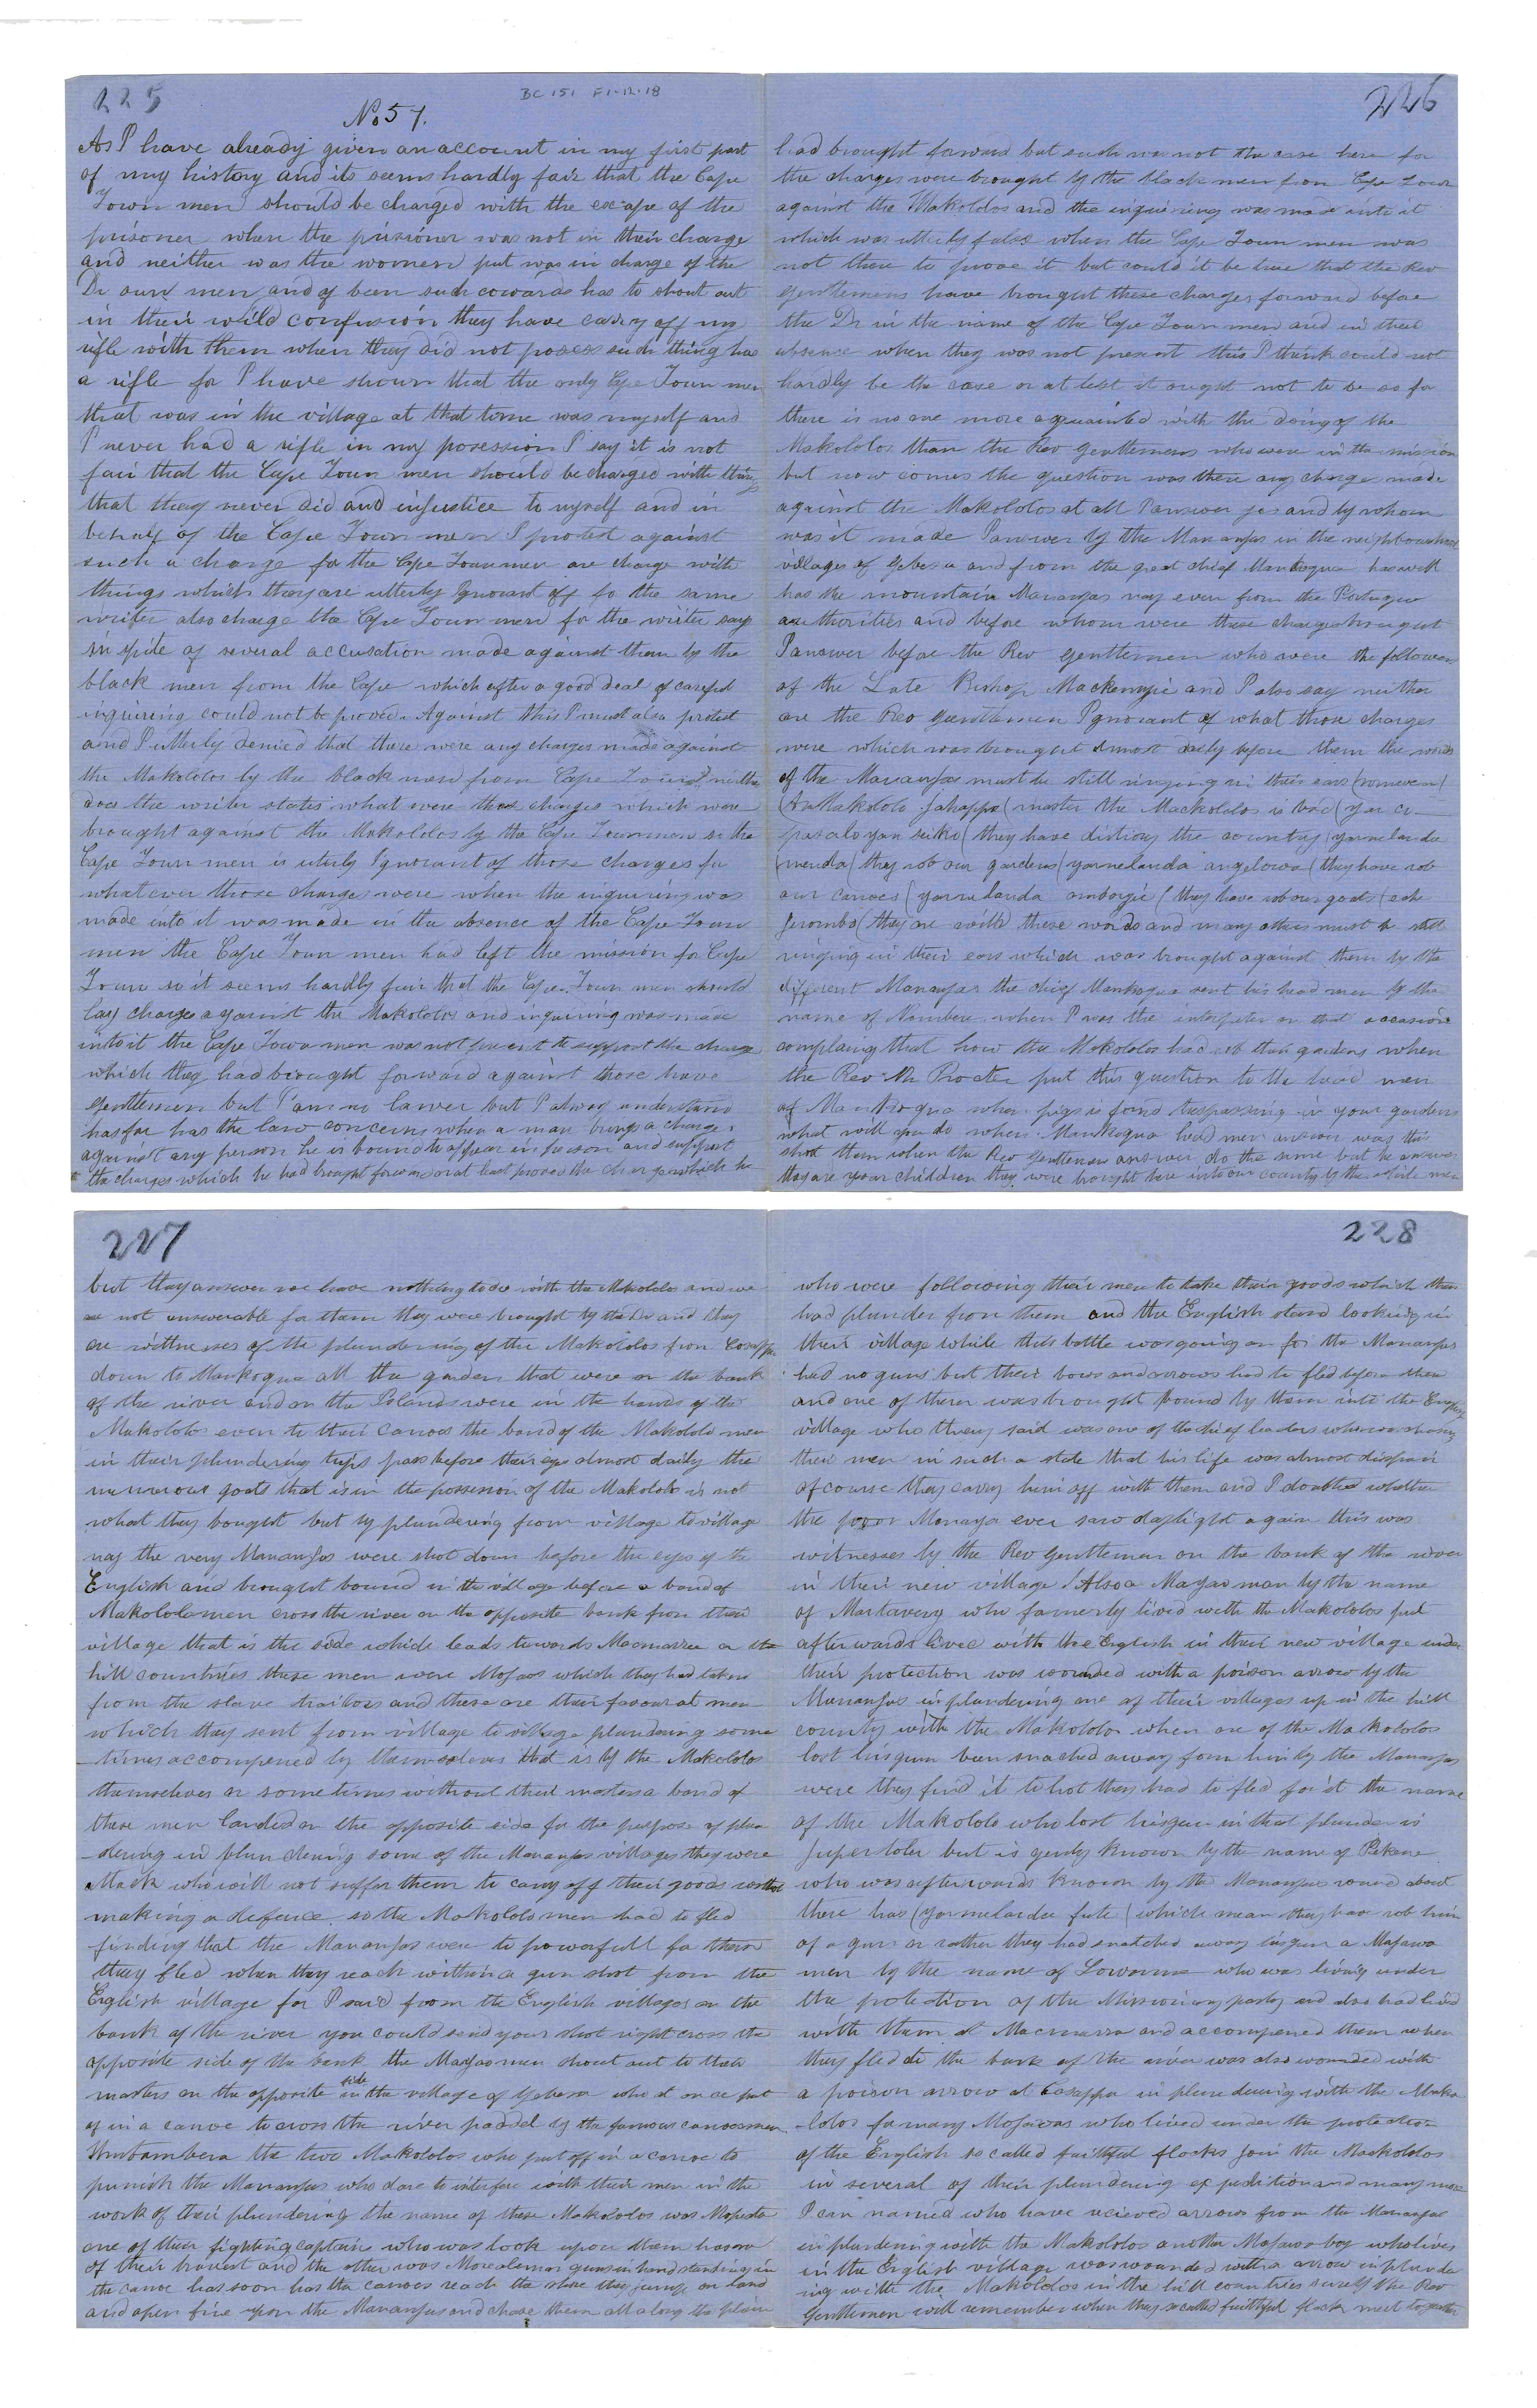 225
BC 151 F1.12.18
No 57.
As I have already given an account in my first part
of my history and its seems hardly fair that the Cape
Town men should be charged with the escape of the
prisoner when the prisioner was not in their charge
and neither was the women put was in charge of the
Dr own men and of been such cowards has to shout out
in their wild confusion they have carry off my
rifle with them when they did not posess such thing has
a rifle for I have shown that the only Cape Town men
that was in the village at that time was myself and
I never had a rifle in my posession I say it is not
fair that the Cape Town men should be charged with things
that they never did and injustice to myself and in
behalf of the Cape Town men I protest against
such a charge for the Cape Town men are charge with
things which they are utterly Ignorant off for the same
writer also charge the Cape Town men for the writer says
in spite of several accusation made against them by the
black men from the Cape which after a good deal of careful
inquiring could not be proved. Against this I must also protest
and I utterly denied that there were any charges made against
the Makololos by the black men from Cape Town neither
does the writer states what were those charges which were
brought against the Makololos by the Cape Town men so the
Cape Town men is uterly Ignorant of those charges for
what ever those charges were when the inquireing was
made into it was made in the absence of the Cape Town
men the Cape Town men had left the mission for Cape
Town so it seems hardly fair that the Cape Town men should
lay charges against the Makololos and inquiring was made
into it the Cape Town men was not present to support the charge
which they had brought forward against those have
gentlemen but I am no lawer but I alway understand
has far has the law concerns when a man brings a charge
against any person he is bound to appear in person and support
the charges which he had brought forward or at last proved the charges which he
226
had brought forward but such was not the case here for
the charges were brought by the black men from Cape Town
against the Makololos and the inquireing was made into it
which was utterly false when the Cape Town men was
not there to prove it but could it be true that the Rev
gentlemens have brought these charges forward before
the Dr in the name of the Cape Town men and in their
absence when they was not present this I think could not
hardly be the case or at lest it ought not to be so for
there is no one more aquainted with the doing of the
Makololos than the Rev gentlemens who were in the mission
but now comes the question was there any charge made
against the Makololos at all I answer yes and by whom
was it made I answer by the Mananjas in the neighbourhood
villages of and from the great chief Mankoqua has well
has the mountain Mananjas nay even from the Portugue
authorities and before whom were these charges brought
I answer before the Rev gentlemen who were the follower
of the Late Bishop Mackenzie and I also say neither
are the Rev gentlemen Ignorant of what those charges
were which was brought almost daily before them the words
of the Mananjas must be still ringing in their ears
Makololo (master the Mackololos is bad
(they have distroy the country
(they rob our gardens (they have rob
our canoes (they have rob our goats
(they are these words and many others must be still
ringing in their ears which was brought against them by the
different Mananjas the chief Mankoqua sent his head men by the
name of when I was the interpeter on that occasion
complaing that how the Makololos had rob their gardens when
the Rev Mr Procter put this question to the head men
of Mankoqua when pigs is found trespassing in your gardens
what will you do when Mankoqua head men answer was this
shot them when the Rev gentlemen answer do the same but he answer
they are your children they were brought here into our country by the white men
227
but they answer we have nothing to do with the Makololos and we
are not answerable for them they were brought by the Dr and they
are wittnesses of the plundering of the Makololos from
down to Mankoqua all the gardens that were on the bank
of the river and on the Islands were in the hands of the
Makololos even to their canoes the band of the Makololo men
in their plundering trips pass before their eyes almost daily the
numerous goats that is in the possesion of the Makololos is not
what they bought but by plundering from village to village
nay the very Mananjas were shot down before the eyes of the
English and brought bound in the village before a band of
Makololo men cross the river on the opposite bank from their
village that is the side which leads towards on the
hill countries these men were which they had taken
from the slave traitors and these are their favourat men
which they sent from village to village plundering some
-times accompened by themselves that is by the Makololos
themselves or some times without their masters a band of
these men landed on the opposite side for the purpose of plun
-dering in plundering some of the Mananjas villages they were
attack who will not suffer them to carry off their goods without
making a defence so the Makololo men had to fled
finding that the Mananjas were to powerfull for them
they fled when they reach within a gun shot from the
English village for I said from the English villages on the
bank of the river you could send your shot right cross the
opposite side of the bank the men shout out to their
masters on the opposite side in the village of who at once put
of in a canoe to cross the river paddel by the famous canoe men
the two Makololos who put off in a canoe to
punish the Mananjas who dare to interfere with their men in the
work of their plundering the name of these Makololos was
one of their fighting captain who was look upon them has one
of their bravest and the other was guns in hand standing in
the canoe has soon has the canoes reach the shore they jump on land
and open fire upon the Mananjas and chase them all along the plain
228
who were following their men to take their goods which they
had plunder from them and the English stand looking in
their village while this battle was going on for the Mananjas
had no guns but their bows and arrows had to fled before them
and one of them was brought bound by them into the English
village who they said was one of the chief leaders who was
their men in such a state that his life was almost dispair
of course they carry him off with them and I doubted whether
the poor Mananja ever saw daylight again this was
witnesses by the Rev Gentleman on the bank of the river
in their new village Also a man by the name
of who formerly lived with the Makololos but
afterwards lived with the English in their new village under
their protection was wounded with a poison arrow by the
Mananjas in plundering one of their villages up in the hill
country with the Makololos when one of the Makololos
lost his gun been snached away from him by the Mananjas
were they find it to hot they had to fled for it the name
of the Makololo who lost his gun in that plunder is
but is known by the name of
who was afterwards known by the Mananjas round about
there has which mean they have rob him
of a gun or rather they had snatched away his gun a
men by the name of who was living under
the protection of the Missionary party and also had lived
with them at and accompened them when
they fled to the bank of the river was also wounded with
a poison arrow at in plundering with the Mako
-lolos for many who lived under the protection
of the English so called faithful flocks join the Mackololos
in several of their plundering expedition and many more
I can named who have recieved arrows from the Mananjas
in plundering with the Makololos another boy who lives
in the English village was wounded with a arrow in plunde
ing with the Makololos in the hill countries surely the Rev
Gentlemen will remember when they so called faithful flock meet together